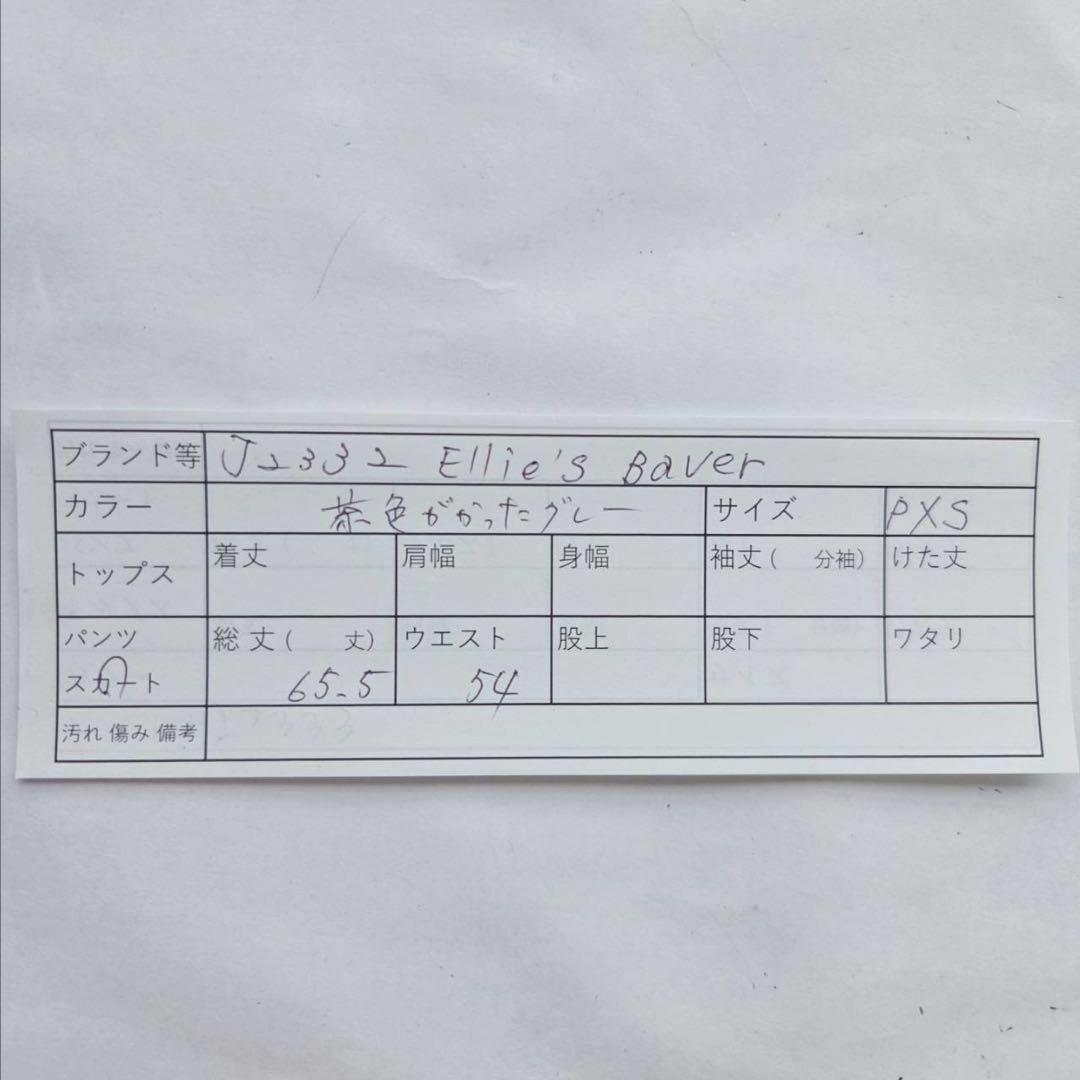 ブランド等 J2332 Ellie's Baver
カラー 茶色がかったグレー サイズ PXS
トップス 着丈 肩幅 身幅 袖丈( 分袖) けた丈
パンツ 総丈( 丈) ウエスト 股上 股下 ワタリ
スカート 65.5 54
汚れ 傷み 備考